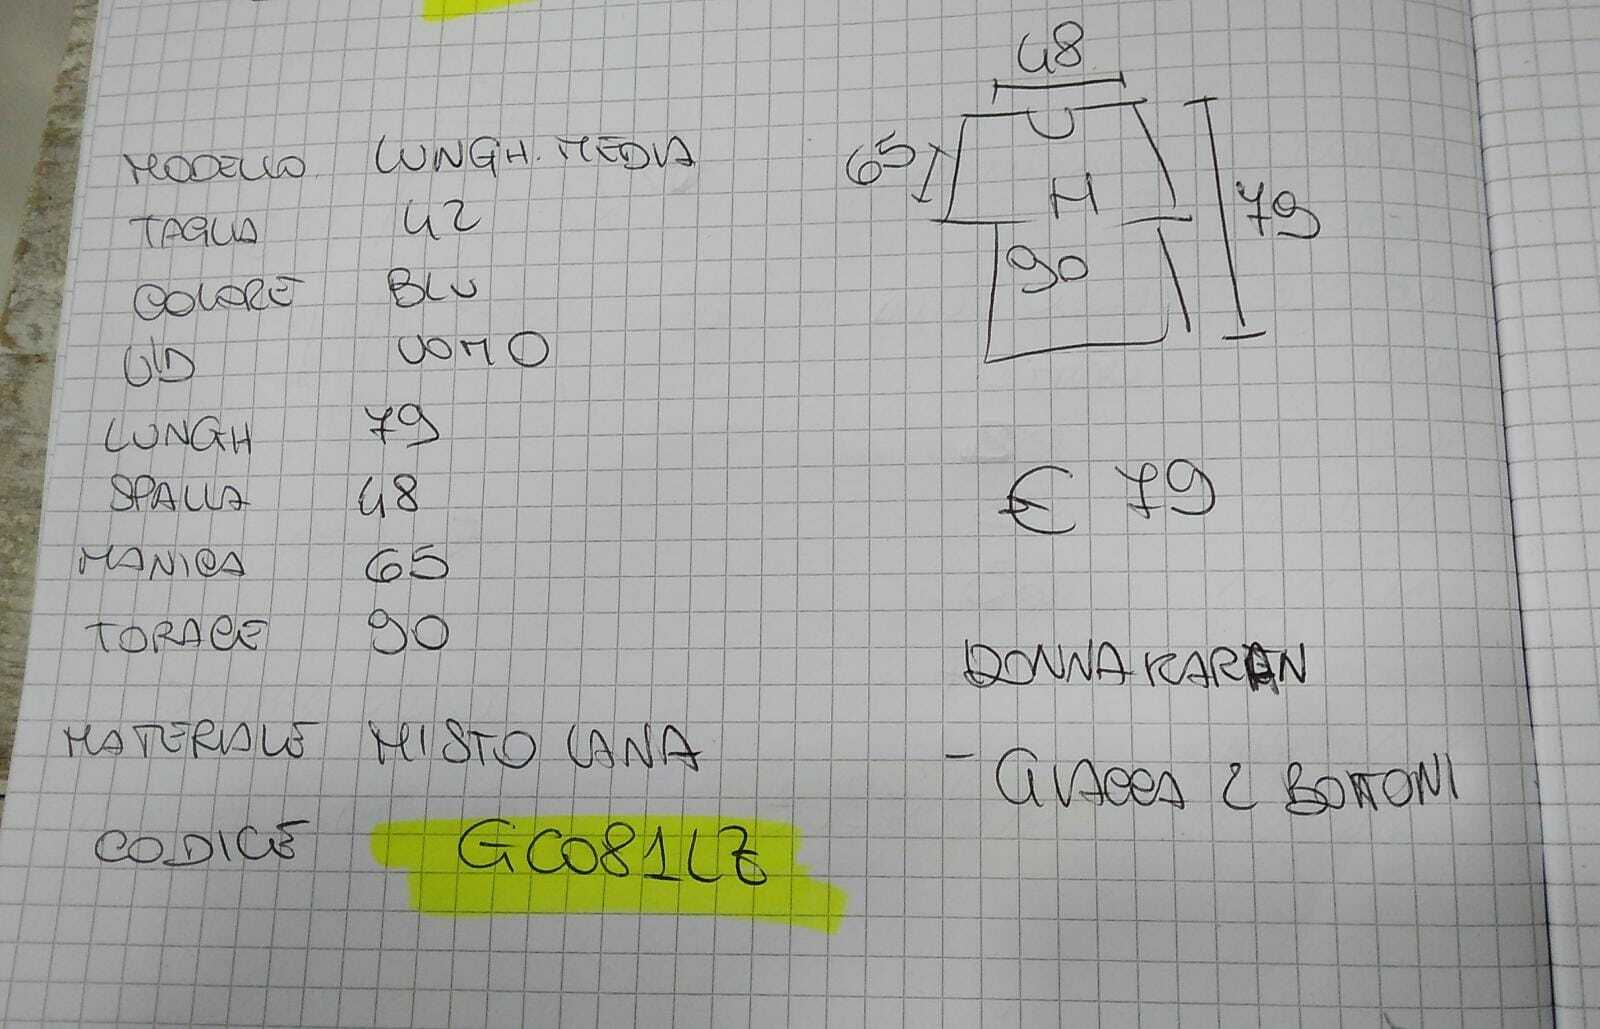 MODELLO LUNGH. MEDIA
TAGLIA 42
COLORE BLU
U/D UOMO
LUNGH 79
SPALLA 48
MANICA 65
TORACE 90
MATERIALE MISTO LANA
CODICE GC081LZ
48
65
M
79
90
€ 79
DONNAKARAN
- GIACCA 2 BOTTONI